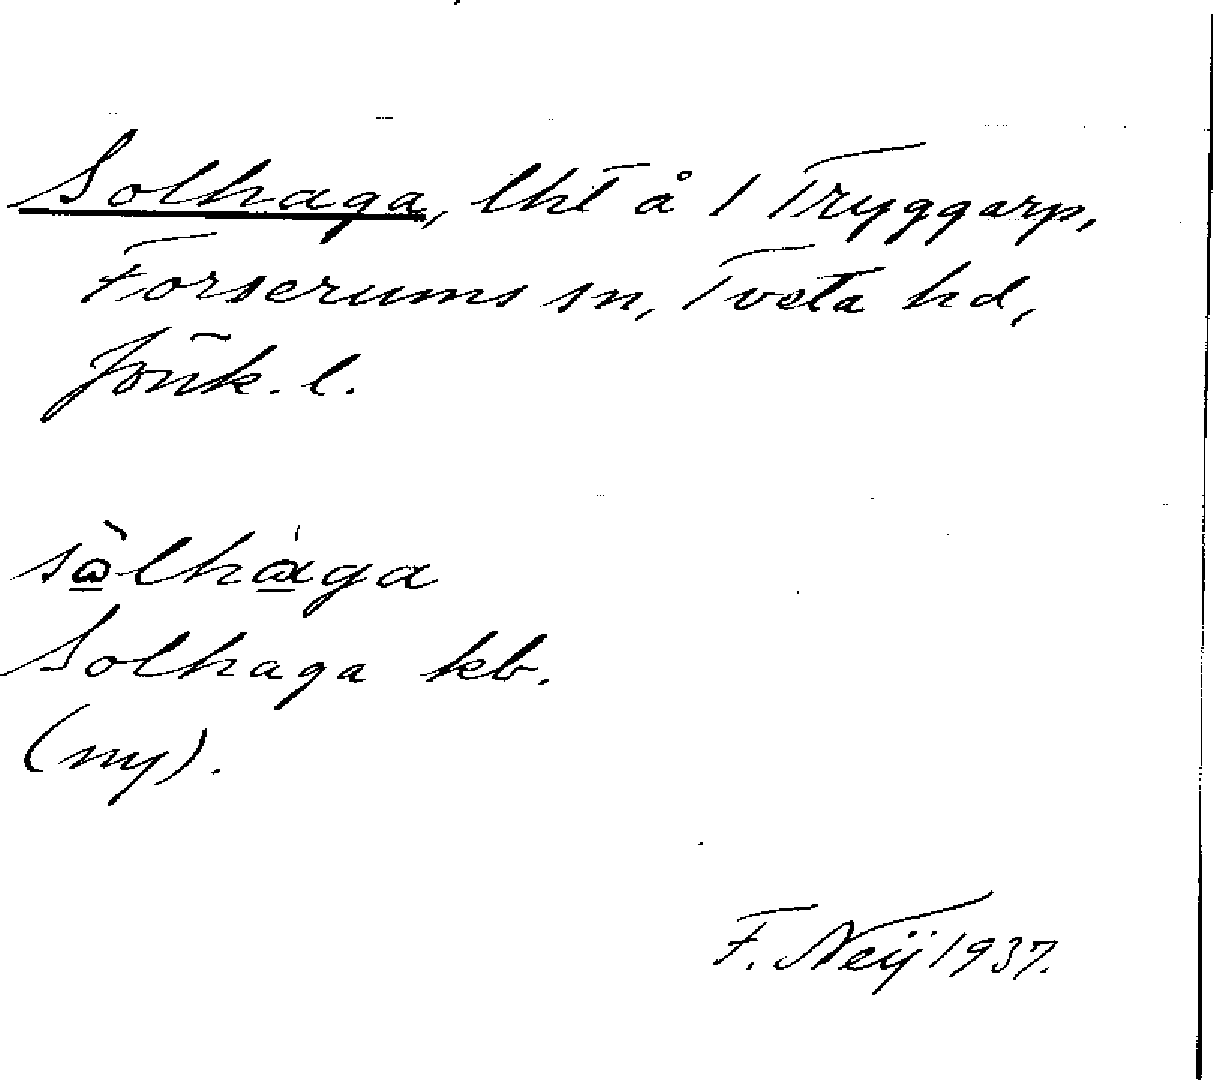 Solhaga, lht å 1 Tryggarp,
Forserums sn, Tveta hd,
Jönk. l.
sὼ̲lhὰ̲ga
Solhaga kb.
(ny).
F. Neij 1937.